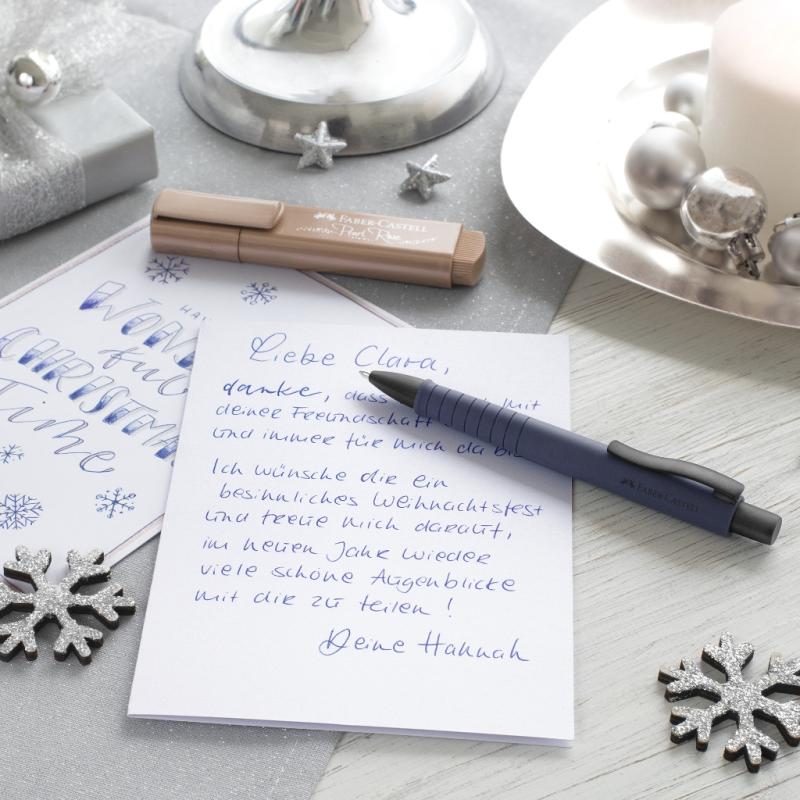 FABER-CASTELL
Pearl Rose
WON
CHRISTMA
Time
Liebe Clara,
danke, dass mit
deiner Freundschaft
und immer für mich da
Ich wünsche dir ein
besinnliches Weihnachtsfest
und freue mich darauf,
im neuen Jahr wieder
viele schöne Augenblicke
mit dir zu teilen!
Deine Hannah
FABER-CASTELL